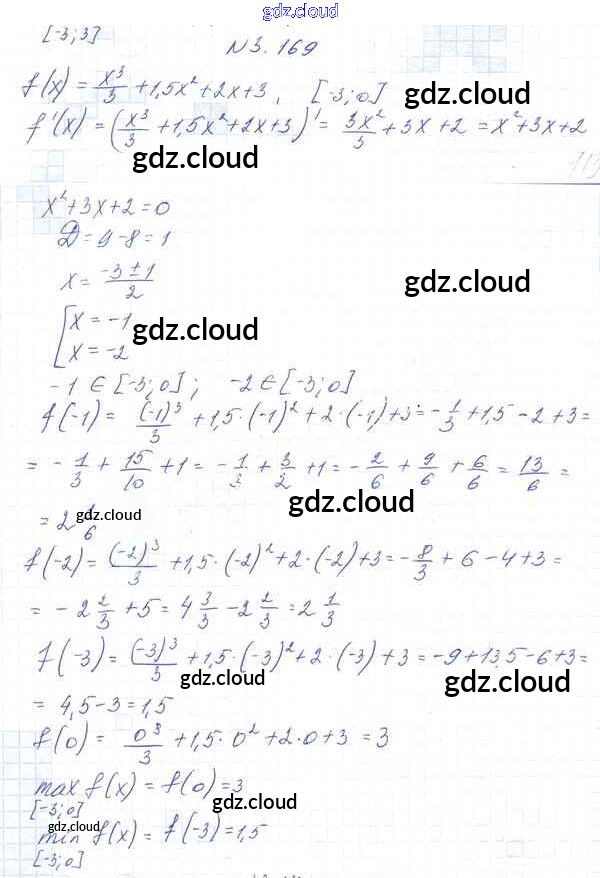 gdz.cloud
[-3;3]
N3.169
f(x) = x³/3 + 1,5x² + 2x + 3, [-3;0] gdz.cloud
f'(x) = (x³/3 + 1,5x² + 2x + 3)' = 3x²/3 + 3x + 2 = x² + 3x + 2
gdz.cloud
113
x² + 3x + 2 = 0
D = 9 - 8 = 1
x = (-3 ± 1)/2
gdz.cloud
[x = -1
gdz.cloud
[x = -2
-1 ∈ [-3;0]; -2 ∈ [-3;0]
f(-1) = (-1)³/3 + 1,5·(-1)² + 2·(-1) + 3 = -1/3 + 1,5 - 2 + 3 =
= -1/3 + 15/10 + 1 = -1/3 + 3/2 + 1 = -2/6 + 9/6 + 6/6 = 13/6 =
= 2 1/6 gdz.cloud gdz.cloud
f(-2) = (-2)³/3 + 1,5·(-2)² + 2·(-2) + 3 = -8/3 + 6 - 4 + 3 =
= -2 2/3 + 5 = 4 3/3 - 2 2/3 = 2 1/3
f(-3) = (-3)³/3 + 1,5·(-3)² + 2·(-3) + 3 = -9 + 13,5 - 6 + 3 =
gdz.cloud gdz.cloud
= 4,5 - 3 = 1,5
f(0) = 0³/3 + 1,5·0² + 2·0 + 3 = 3
max f(x) = f(0) = 3
[-3;0] gdz.cloud
gdz.cloud
min f(x) = f(-3) = 1,5
[-3;0] gdz.cloud